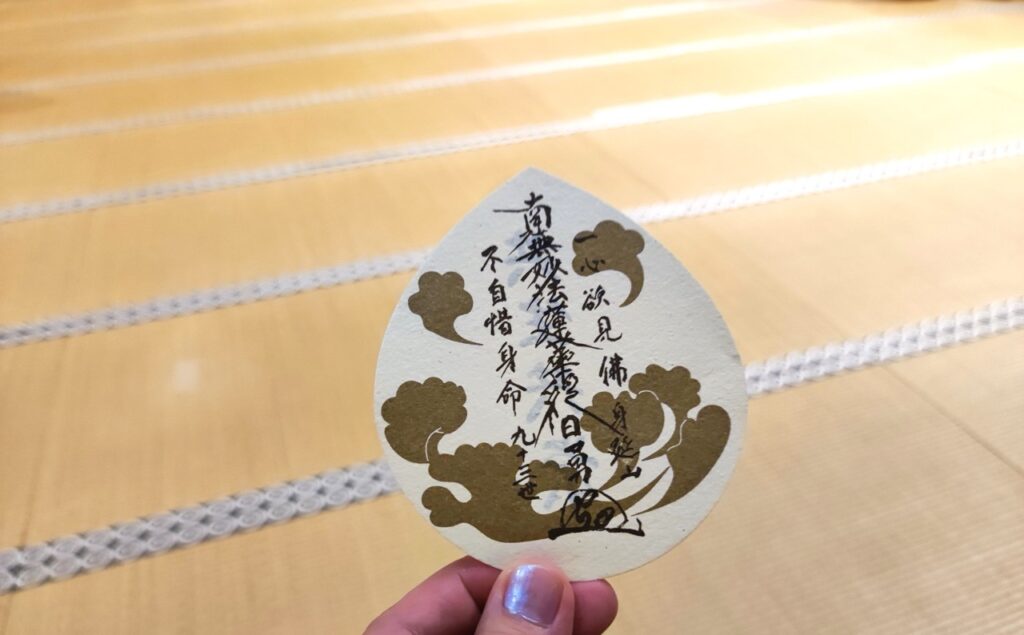 一心欲見佛 身延山
南無妙法蓮華経 日勇
不自惜身命 九十三世